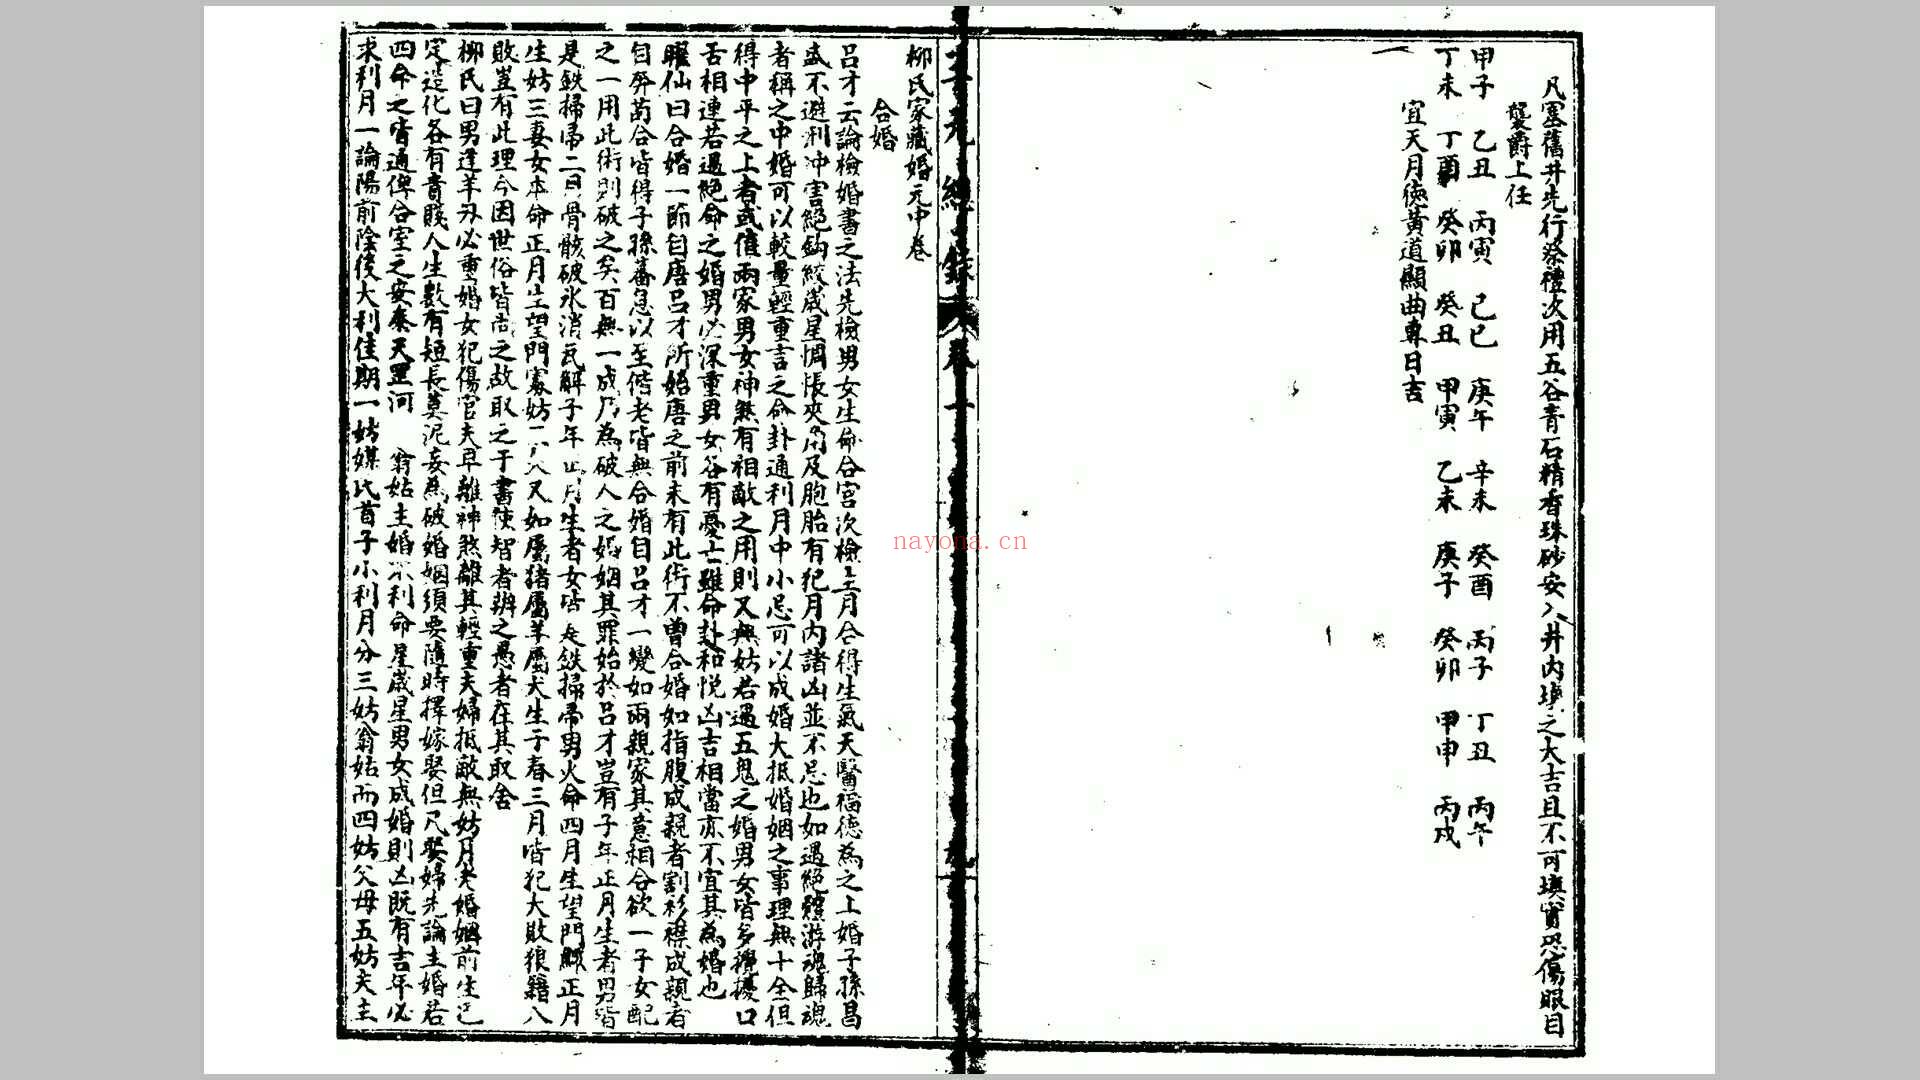 凡塞舊井先行祭禮次用五谷青石精香珠砂安入井內填之大吉且不可填實恐傷眼目
襲爵上任
甲子 乙丑 丙寅 己巳 庚午 辛未 癸酉 丙子 丁丑 丙午
丁未 丁酉 癸卯 癸丑 甲寅 乙未 庚子 癸卯 甲申 丙戌
宜天月德黃道顯曲專日吉
柳氏家藏婚元中卷
合婚
呂才云論檢婚書之法先檢男女生命合宮次檢生月合得生氣天醫福德為之上婚子孫昌
盛不避刑冲害絕鈎絞歲星惆悵夾角及胞胎有犯月內諸凶並不忌也如遇絕體游魂歸魂
者稱之中婚可以較量輕重言之命卦通利月中小忌可以成婚大抵婚姻之事理無十全但
得中平之上者或值兩家男女神煞有相敵之用則又無妨若遇五鬼之婚男女皆多攪擾口
舌相連若遇絕命之婚男必深重男女各有憂亡雖命卦和悅凶吉相當亦不宜其為婚也
臞仙曰合婚一節自唐呂才所始唐之前未有此術不曾合婚如指腹成親者割衫襟成親者
自發苟合皆得子孫蕃息以至偕老皆無合婚自呂才一變如兩親家其意相合欲一子女配
之一用此術則破之矣百無一成乃為破人之婚姻其罪始於呂才豈有子年正月生者男皆
是鉄掃帚二月骨骸破氷消瓦解子年正月生者女皆是鉄掃帚男火命四月生望門鰥正月
生妨三妻女本命正月生望門寡妨二夫又如屬猪屬羊屬犬生于春三月皆犯大敗狼籍八
敗豈有此理今因世俗皆尚之故取之于書使智者辨之愚者在其取舍
柳氏曰男逢羊刃必重婚女犯傷官夫早離神煞離其輕重夫婦抵敵無妨月老婚姻前生已
定造化各有貴賤人生數有短長莫泥妄為破婚姻須要隨時擇嫁娶但凡娶婦先論主婚若
四命之皆通俾合室之安泰天罡河 翁姑主婚不利命星歲星男女成婚則凶既有吉年必
求利月一論陽前陰後大利佳期一妨媒氏首子小利月分三妨翁姑而四妨父母五妨夫主